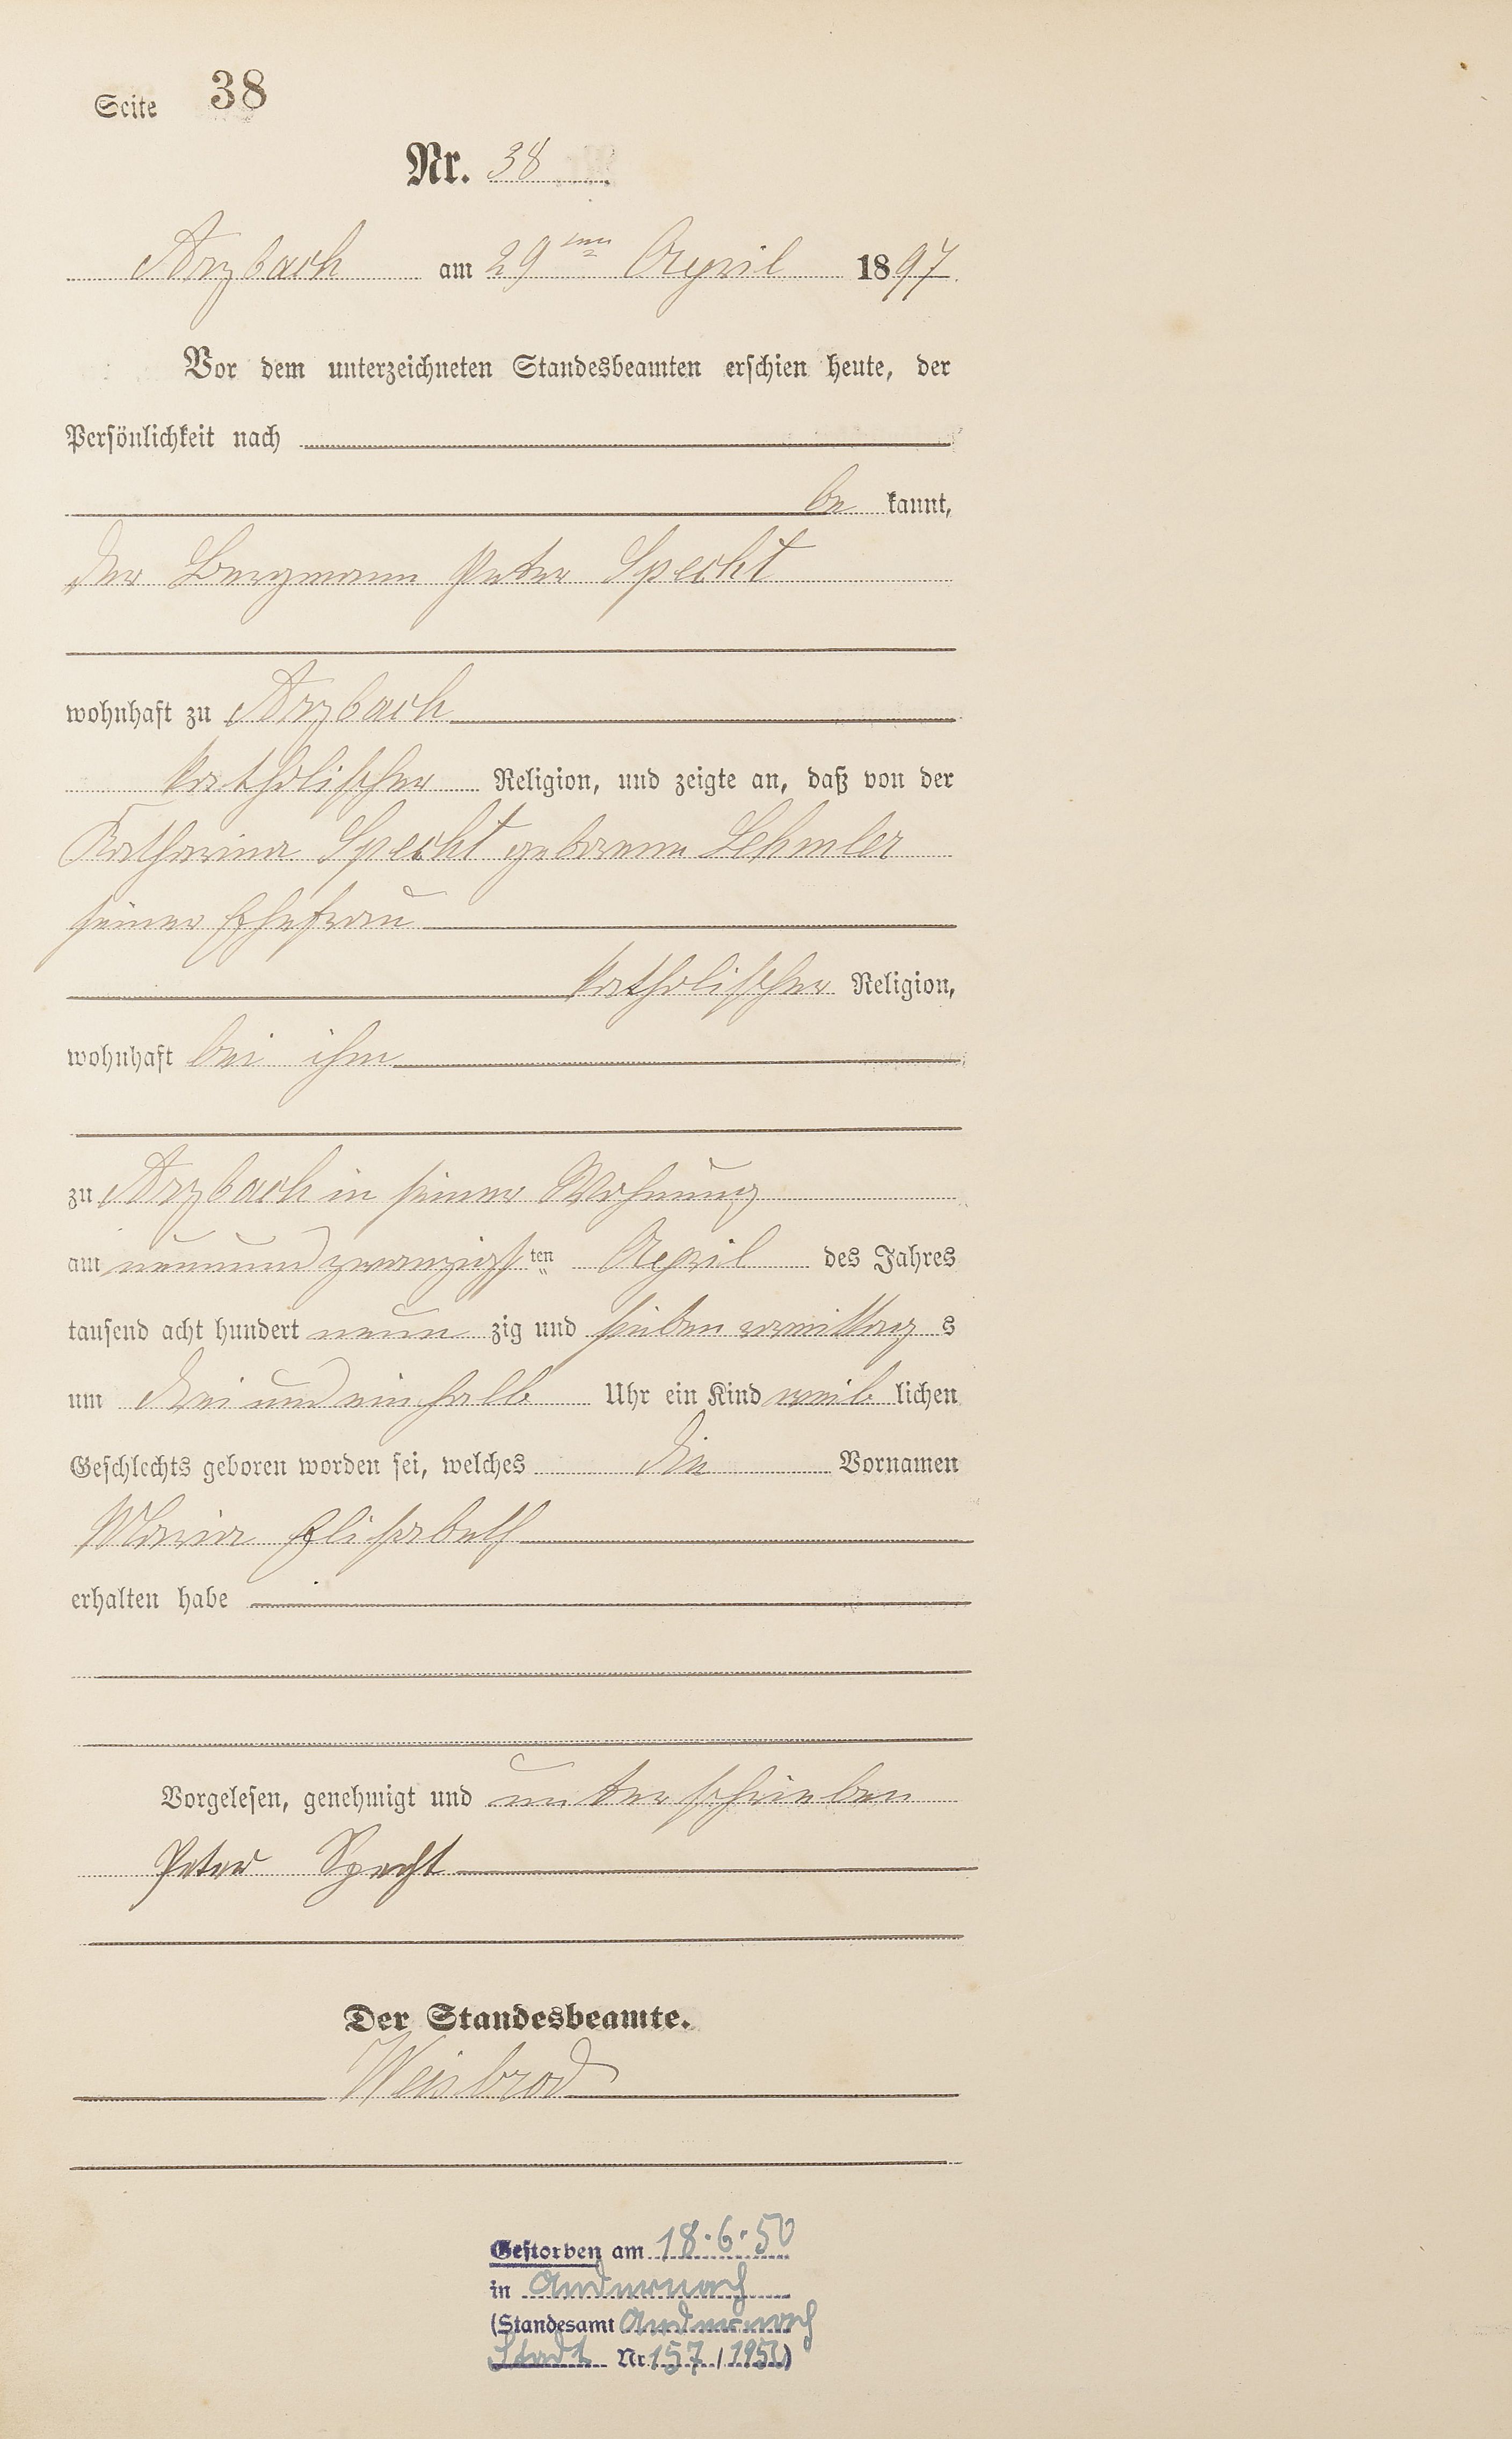 Seite 38
Nr. 38
Arzbach am 29ten April 1897.
Vor dem unterzeichneten Standesbeamten erschien heute, der
Persönlichkeit nach
be kannt,
der Bergmann Peter Specht
wohnhaft zu Arzbach
katholischer Religion, und zeigte an, daß von der
Katharina Specht geborene Lehmler
seiner Ehefrau
katholischer Religion,
wohnhaft bei ihm
zu Arzbach in seiner Wohnung
am neunundzwanzigsten April des Jahres
tausend acht hundert neun zig und sieben vormittag s
um drei und einhalb Uhr ein Kind weib lichen
Geschlechts geboren worden sei, welches die Vornamen
Maria Elisabeth
erhalten habe
Vorgelesen, genehmigt und unterschrieben
Peter Specht
Der Standesbeamte.
Weisbrod
Gestorben am 18.6.50
in Andernach
(Standesamt Andernach
Stadt Nr. 157/1950)